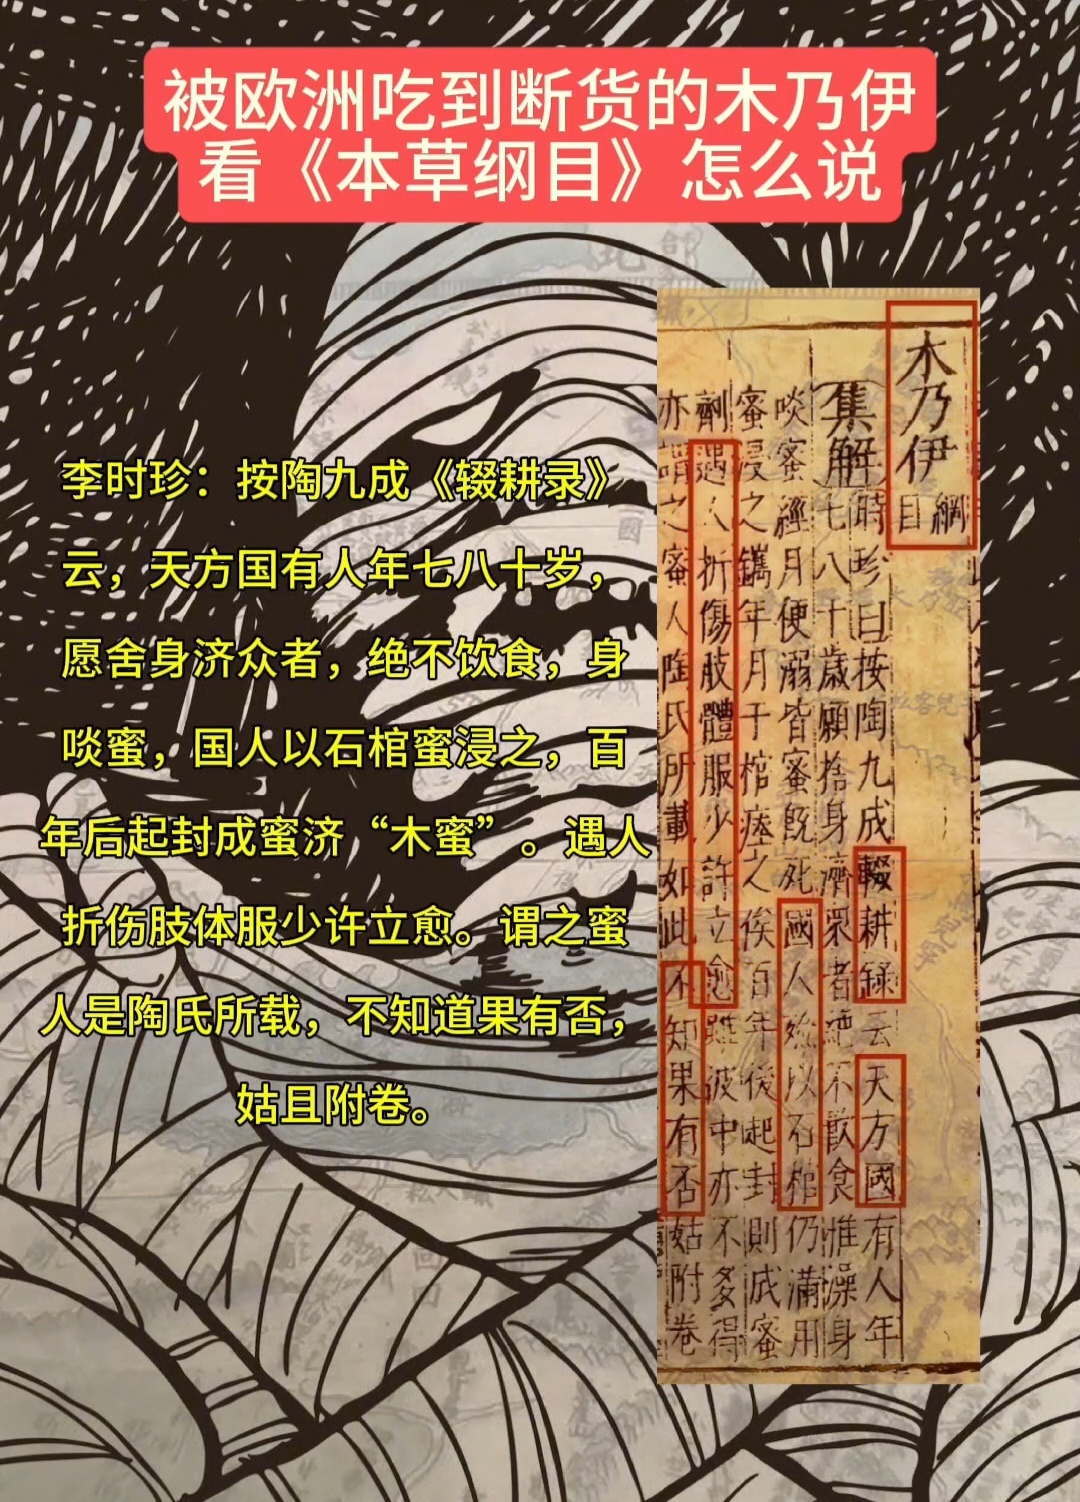 被欧洲吃到断货的木乃伊
看《本草纲目》怎么说
李时珍：按陶九成《辍耕录》
云，天方国有人年七八十岁，
愿舍身济众者，绝不饮食，身
啖蜜，国人以石棺蜜浸之，百
年后起封成蜜济“木蜜”。遇人
折伤肢体服少许立愈。谓之蜜
人是陶氏所载，不知道果有否，
姑且附卷。
木乃伊
綱目
集解
時珍曰按陶九成輟耕録云天方國有人年
七八十歲願捨身濟眾者絶不飲食惟澡身
啖蜜經月便溺皆蜜既死國人殮以石棺仍滿用
蜜浸之鐫年月于棺瘞之俟百年後起封則成蜜
劑遇人折傷肢體服少許立愈雖彼中亦不多得
亦謂之蜜人陶氏所載如此不知果有否姑附卷